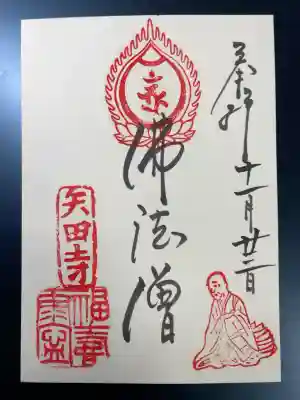 奉拝 十一月廿二日
佛法僧
矢田寺